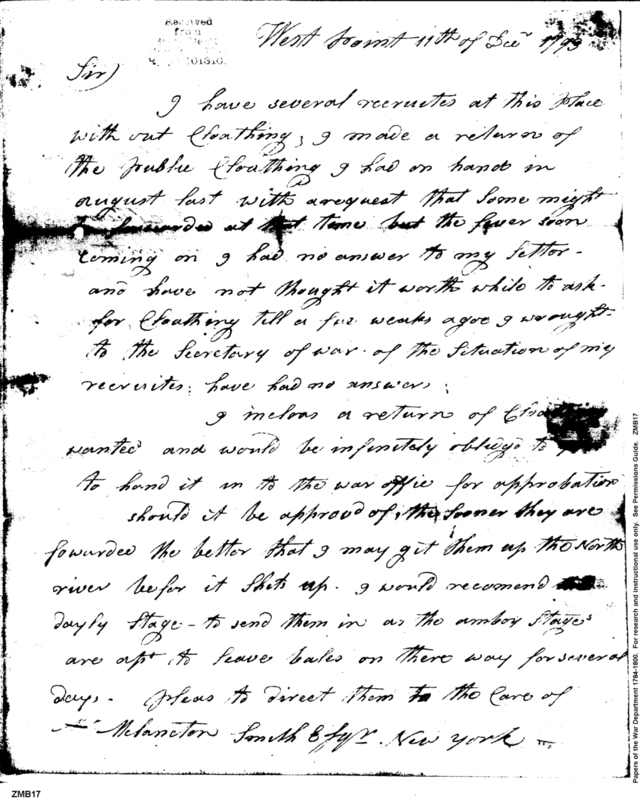 Received
from
West Point 11th of Decr 1793
Sir)
I have several recruites at this place
with out Cloathing; I made a return of
the publick Cloathing I had on hand in
august last with arequest that some might
be forwarded at that time but the fever soon
coming on I had no answer to my letter -
and have not thought it worth while to ask -
for Cloathing till a few weaks agoe I wrought
to the Secretary of war of the Situation of my
recruites; have had no answer;
I inclose a return of
wanted and would be infinitely obledge to
to hand it in to the war office for approbation
should it be approved of, the sooner they are
fowarded the better that I may git them up the North
river befor it Shuts up. I would recomend
dayly Stage - to send them in as the amboy Stages
are apt to leave bales on there way for several
days. Pleas to direct them to the Care of
Melancton Smith Esqr. New York
ZMB17
Papers of the War Department 1784-1800. For research and instructional use only. See Permissions Guide. ZMB17